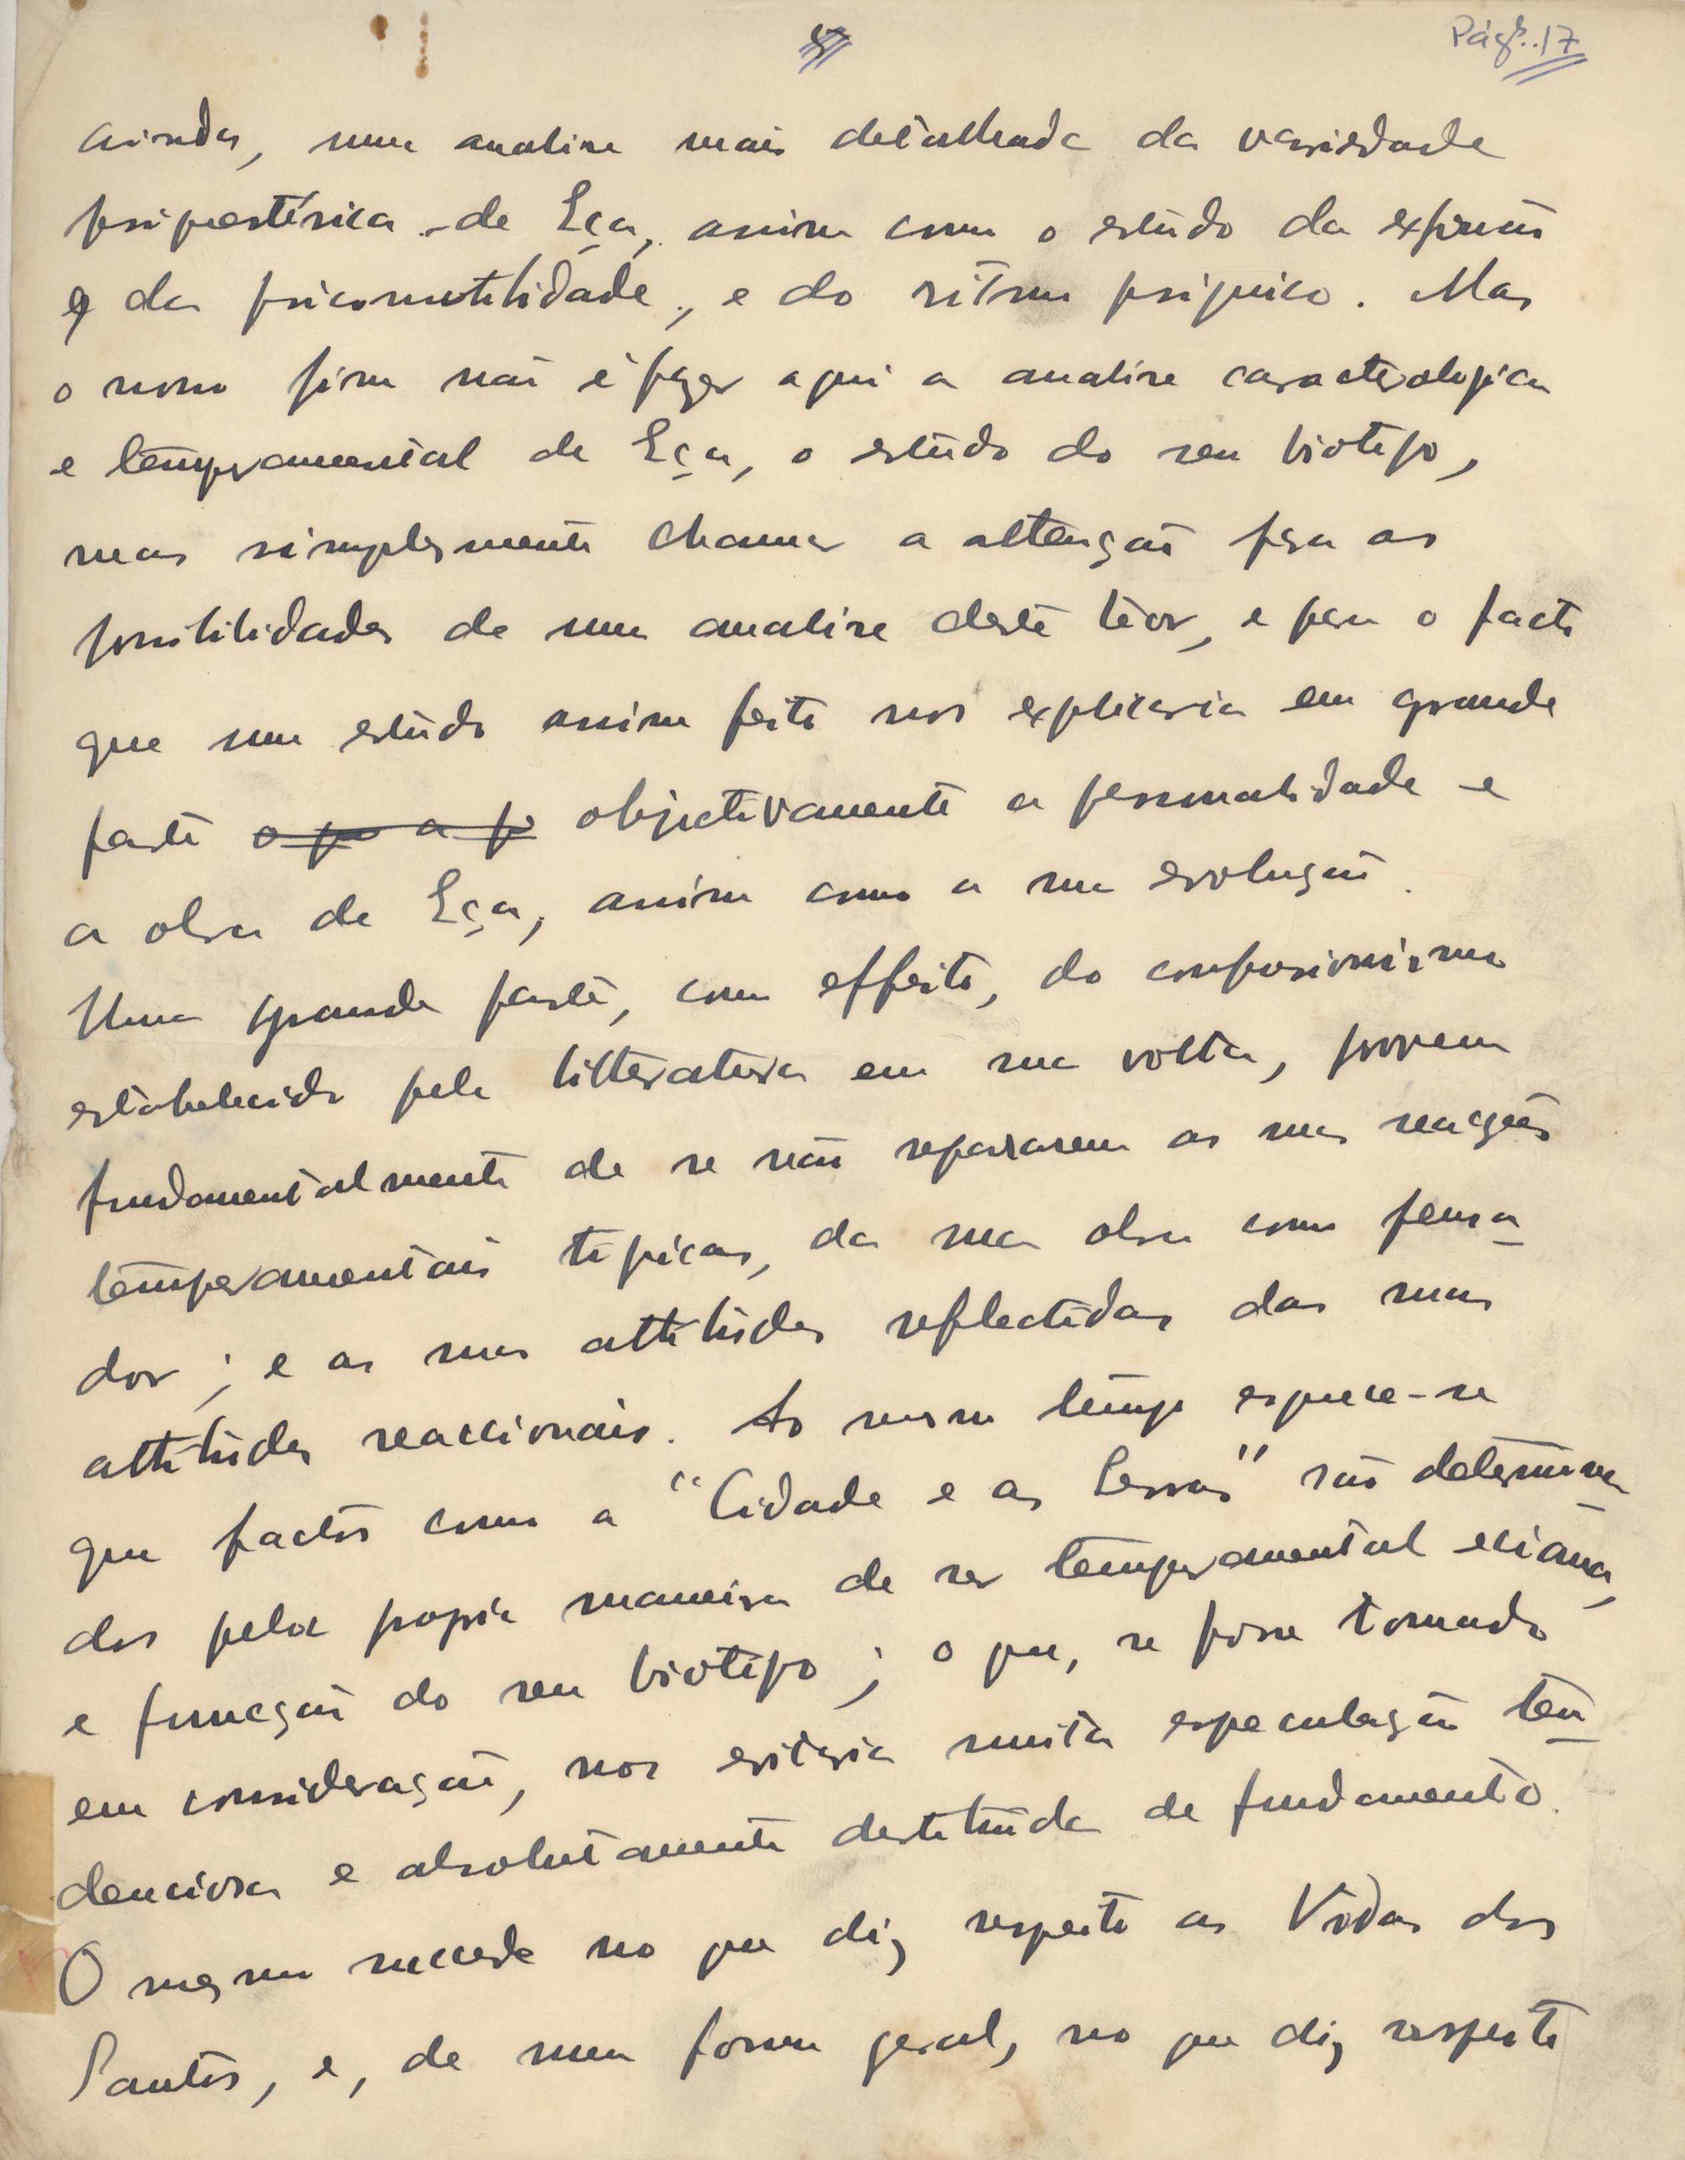 Pág. 17
ainda, uma analise mais detalhada da variedade
psiquestésica de Eça, assim como o estudo da expressão
e da psicomotilidade, e do ritmo psiquico. Mas
o nosso fim não é fazer aqui a analise caracterologica
e temperamental de Eça, o estudo do seu biotipo,
mas simplesmente chamar a attenção para as
possibilidades de uma analise deste teor, e para o facto
que um estudo assim feito nos explicaria em grande
parte objectivamente a personalidade e
a obra de Eça, assim como a sua evolução.
Uma grande parte, com effeito, do confusionismo
estabelecido pela litteratura em sua volta, provem
fundamentalmente de se não separarem as suas reacções
temperamentais tipicas, da sua obra como pensa-
dor; e as suas attitudes reflectidas das suas
attitudes reaccionais. Ao mesmo tempo esquece-se
que factos como a "Cidade e as Serras" são determina-
dos pela propria maneira de ser temperamental eciana,
e funcção do seu biotipo; o que, se fosse tomado
em consideração, nos evitaria muita especulação ten-
denciosa e absolutamente destituida de fundamento.
O mesmo succede no que diz respeito as Vidas dos
Santos, e, de uma forma geral, no que diz respeito